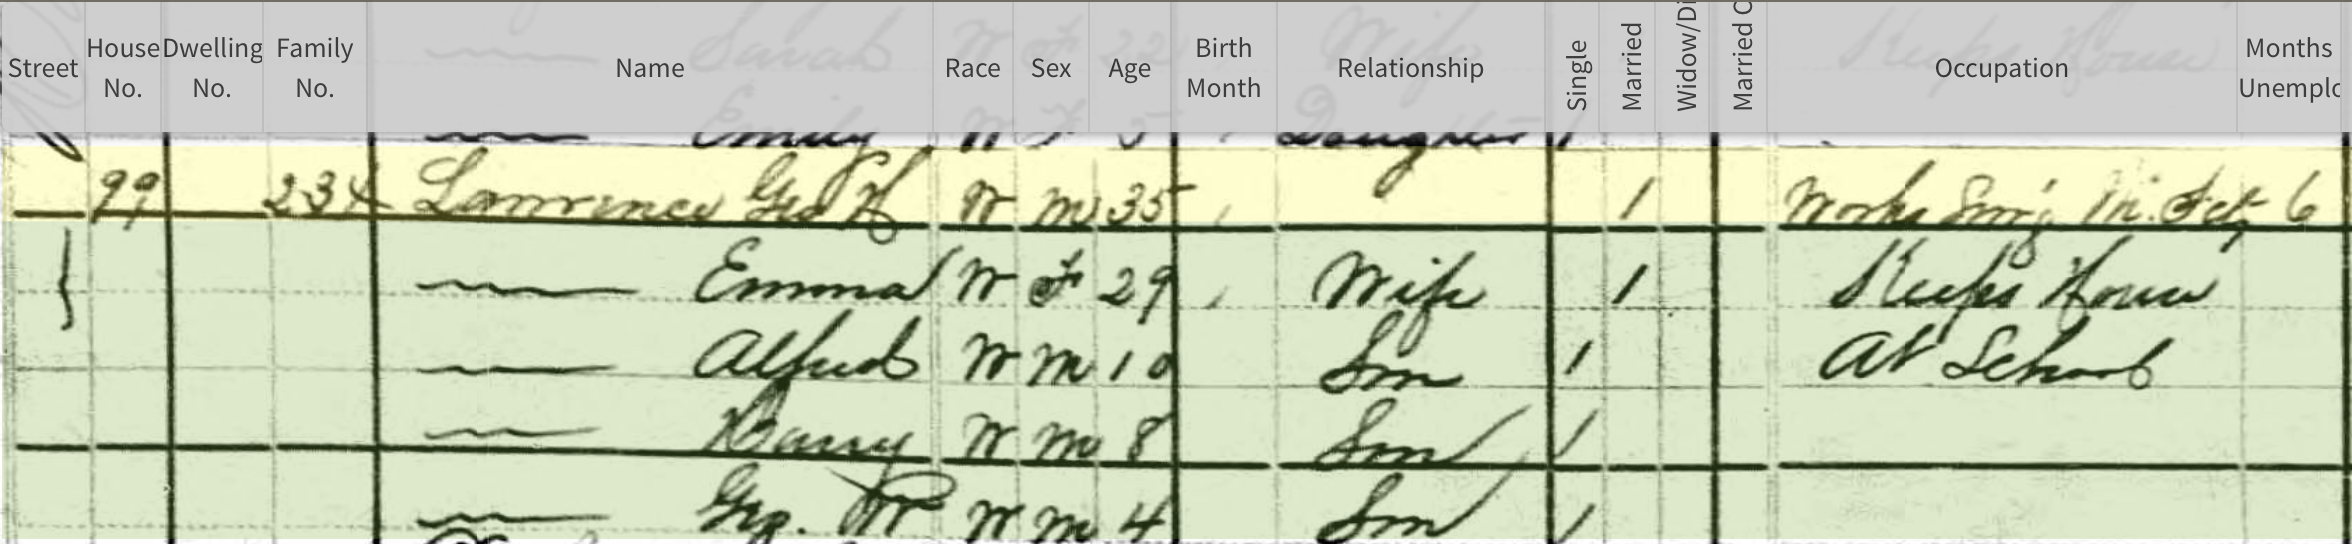 Street House No. Dwelling No. Family No. Name Race Sex Age Birth Month Relationship Single Married Widow/Di Married C Occupation Months Unemplo
Sarah W F 22 Wife Keeps House
Emily W F 5 Daughter 1
99 234 Lawrence Geo H W M 35 1 Works Sew'g M. Fct'y 6
— Emma W F 29 Wife 1 Keeps House
— Alfred W M 10 Son 1 At School
— Harry W M 8 Son 1
— Geo. W W M 4 Son 1